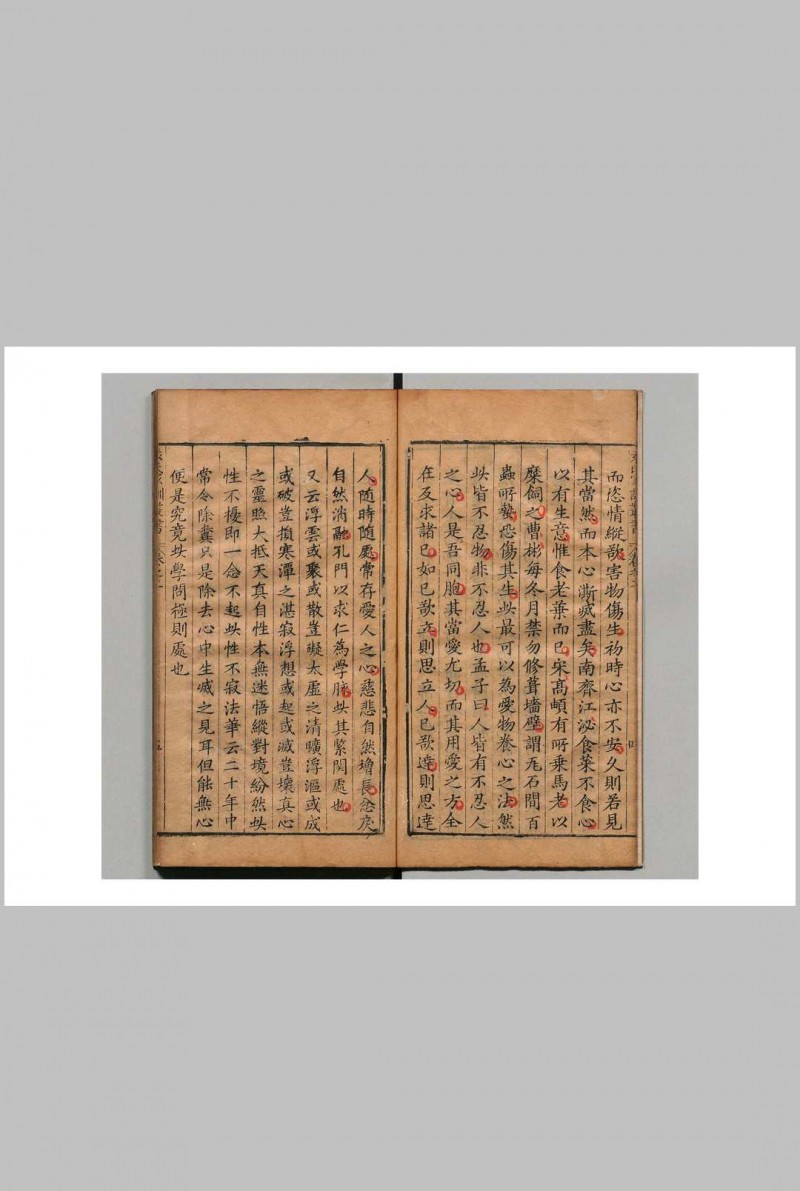 而恣情縱欲害物傷生初時心亦不安久則若見
其當然而本心漸滅盡矣南齊江泌食菜不食心
以有生意惟食老葉而已宋高頔有所乘馬老以
糜飼之曹彬每冬月禁勿修葺墻壁謂瓦石間百
蟲所蟄恐傷其生此最可以為愛物養心之法然
此皆不忍物非不忍人也孟子曰人皆有不忍人
之心人是吾同胞其當愛尤切而其用愛之方全
在反求諸已如已欲立則思立人已欲達則思達
人隨時隨處常存愛人之心慈悲自然增長忿戾
自然消融孔門以求仁為學脉此其緊関處也
又云浮雲或聚或散豈礙太虛之清曠浮漚或成
或破豈損寒潭之湛寂浮想或起或滅豈壞真心
之靈照大抵天真自性本無迷悟縱對境紛然此
性不擾即一念不起此性不寂法華云二十年中
常令除糞只是除去心中生滅之見耳但能無心
便是究竟此學問極則處也
四
五